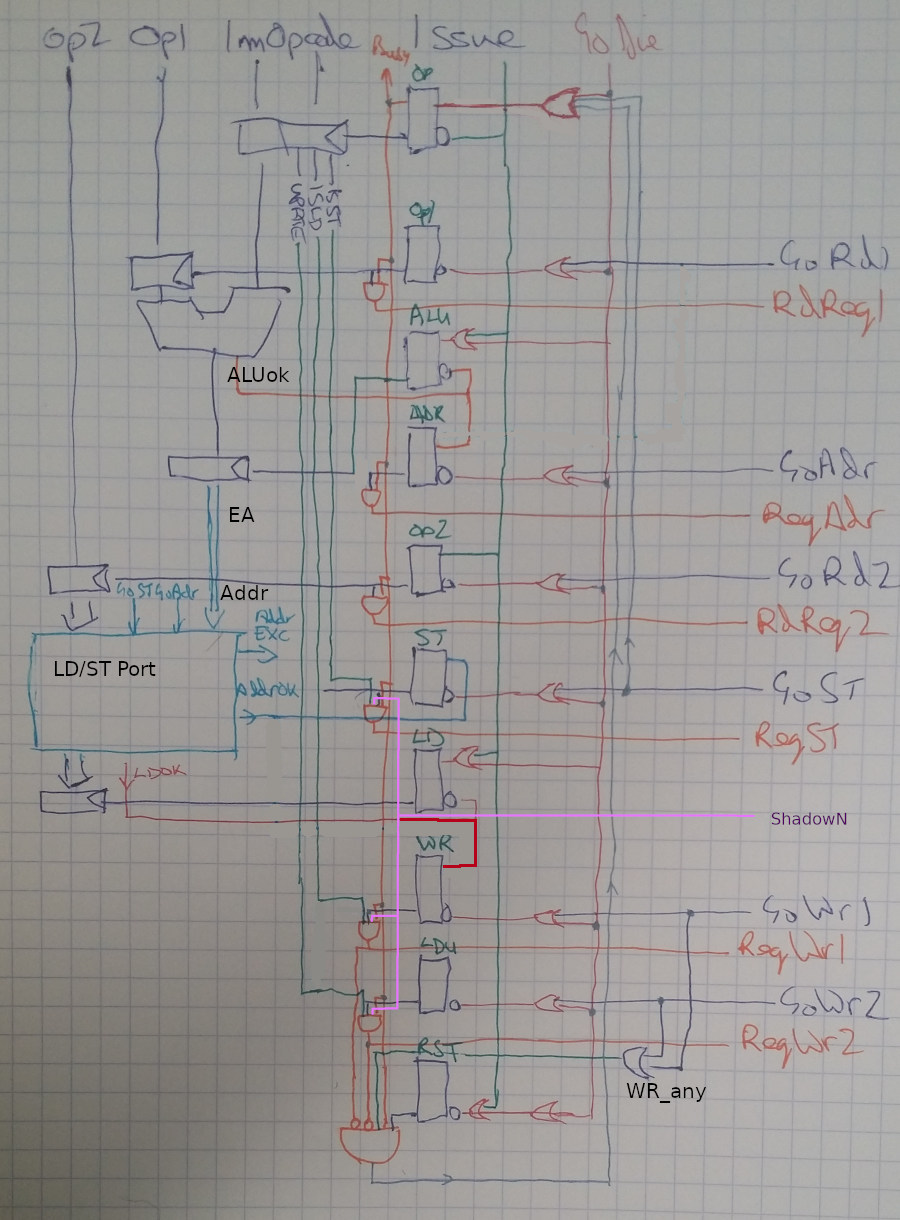 Op2 Op1 Imm Opcode Issue GoDie
Busy
OP
WRATE ISLD ISST
Op1
GoRd1
RdReq1
ALU
ALUok
ADR
GoAdr
EA
ReqAdr
OP2
GoRd2
GoST GoAdr
Addr
Addr
EXC
RdReq2
ST
LD/ST Port
AddrOK
GoST
ReqST
LD
LDOK
ShadowN
WR
GoWr1
ReqWr1
LDU
GoWr2
ReqWr2
RST
WR_any